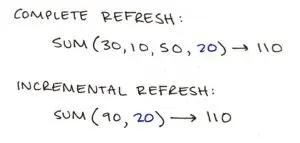 COMPLETE REFRESH:
SUM (30, 10, 50, 20) → 110
INCREMENTAL REFRESH:
SUM (90, 20) → 110